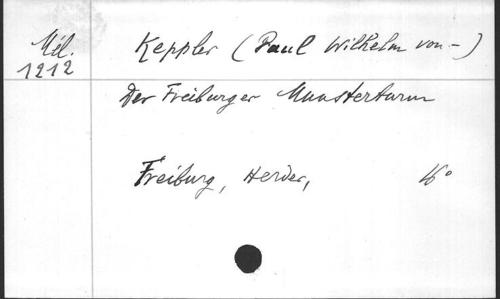 Mél.
1212
Keppler (Paul Wilhelm von -)
Der Freiburger Munsterturm
Freiburg, Herder, 16°